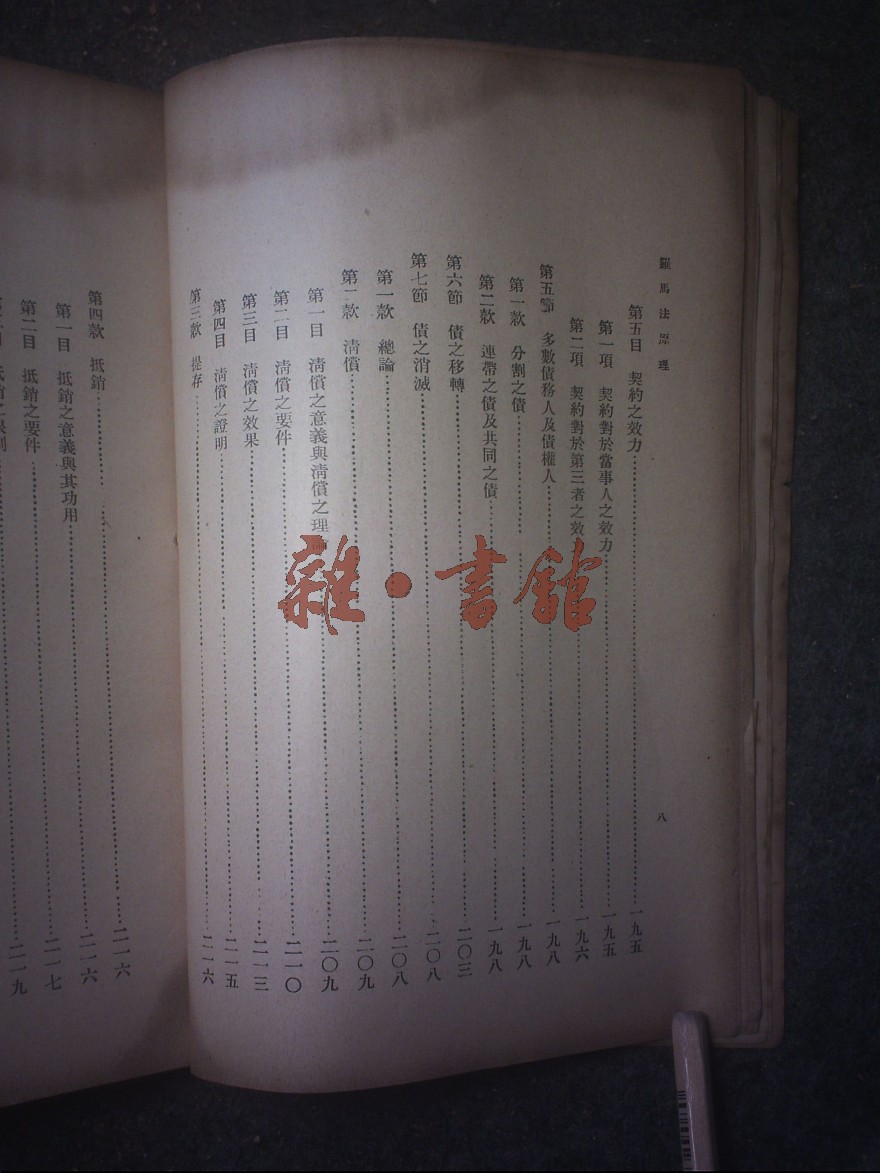 羅馬法原理
八
第五目　契約之效力……一九五
第一項　契約對於當事人之效力……一九五
第二項　契約對於第三者之效……一九六
第五節　多數債務人及債權人……一九八
第一款　分割之債……一九八
第二款　連帶之債及共同之債……一九八
第六節　債之移轉……二〇三
第七節　債之消滅……二〇八
第一款　總論……二〇八
第二款　清償……二〇九
第一目　清償之意義與清償之理論……二〇九
第二目　清償之要件……二一〇
第三目　清償之效果……二一三
第四目　清償之證明……二一五
第三款　提存……二一六
第四款　抵銷……二一六
第一目　抵銷之意義與其功用……二一六
第二目　抵銷之要件……二一七
二一九
雜·書館